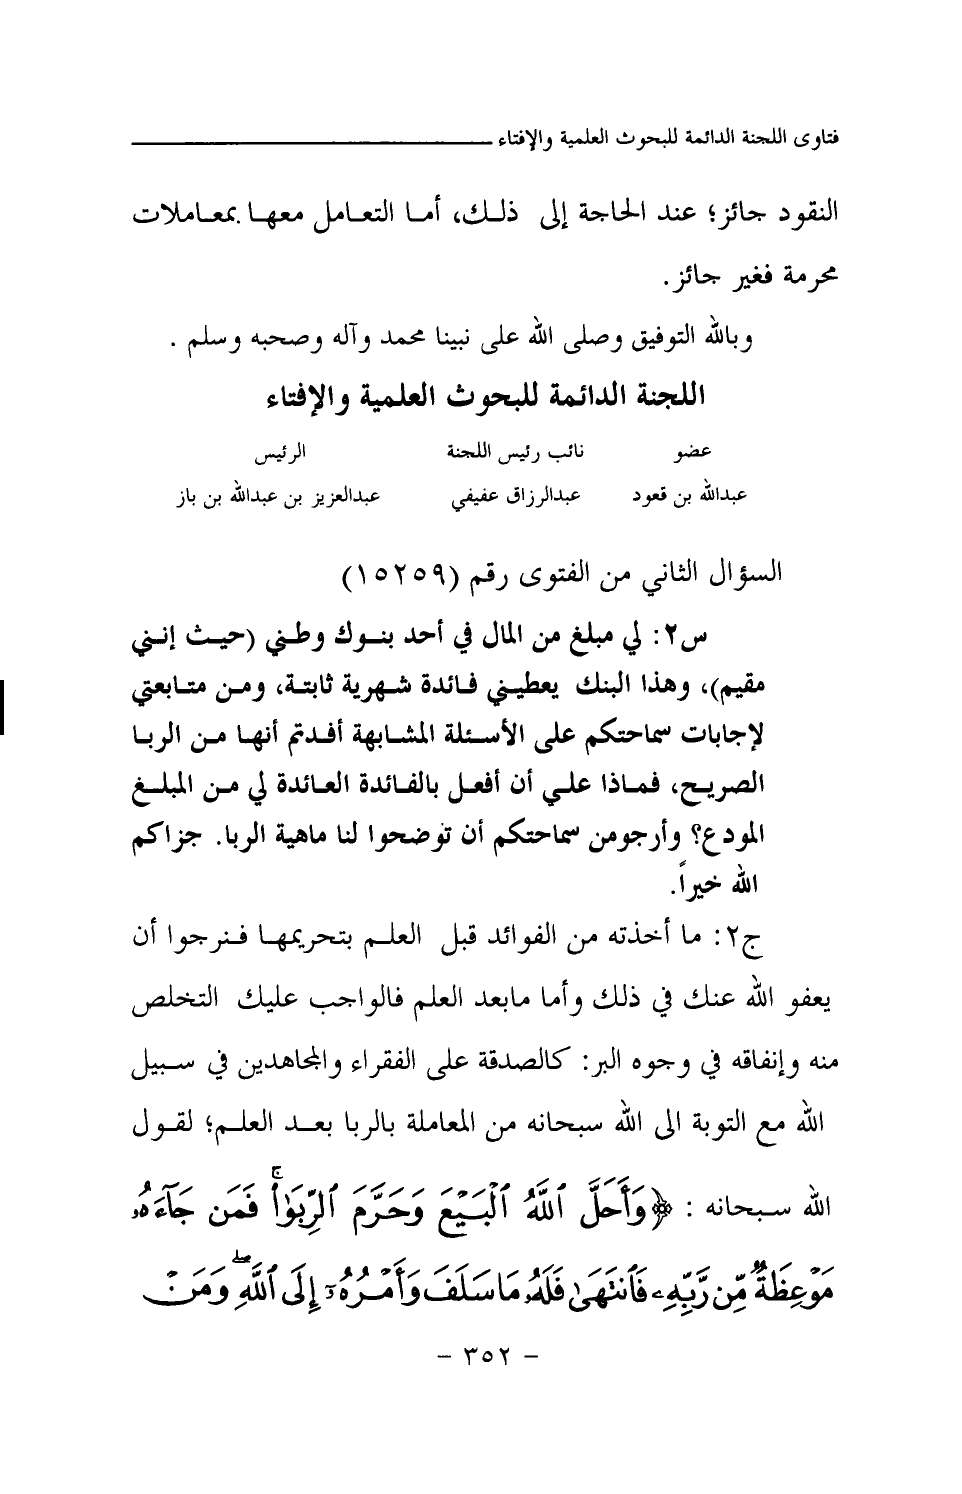 فتاوى اللجنة الدائمة للبحوث العلمية والإفتاء
النقود جائز؛ عند الحاجة إلى ذلك، أما التعامل معها بمعاملات
محرمة فغير جائز.
وبالله التوفيق وصلى الله على نبينا محمد وآله وصحبه وسلم .
اللجنة الدائمة للبحوث العلمية والإفتاء
عضو نائب رئيس اللجنة الرئيس
عبدالله بن قعود عبدالرزاق عفيفي عبدالعزيز بن عبدالله بن باز
السؤال الثاني من الفتوى رقم (١٥٢٥٩)
س٢: لي مبلغ من المال في أحد بنوك وطني (حيث إنني
مقيم)، وهذا البنك يعطيني فائدة شهرية ثابتة، ومن متابعتي
لإجابات سماحتكم على الأسئلة المشابهة أفدتم أنها من الربا
الصريح، فماذا علي أن أفعل بالفائدة العائدة لي من المبلغ
المودع؟ وأرجومن سماحتكم أن توضحوا لنا ماهية الربا. جزاكم
الله خيراً.
ج٢: ما أخذته من الفوائد قبل العلم بتحريمها فنرجوا أن
يعفو الله عنك في ذلك وأما مابعد العلم فالواجب عليك التخلص
منه وإنفاقه في وجوه البر: كالصدقة على الفقراء والمجاهدين في سبيل
الله مع التوبة الى الله سبحانه من المعاملة بالربا بعد العلم؛ لقول
الله سبحانه : ﴿وَأَحَلَّ ٱللَّهُ ٱلْبَيْعَ وَحَرَّمَ ٱلرِّبَوٰا۟ ۚ فَمَن جَآءَهُۥ
مَوْعِظَةٌ مِّن رَّبِّهِۦ فَٱنتَهَىٰ فَلَهُۥ مَا سَلَفَ وَأَمْرُهُۥٓ إِلَى ٱللَّهِ ۖ وَمَنْ
- ٣٥٢ -